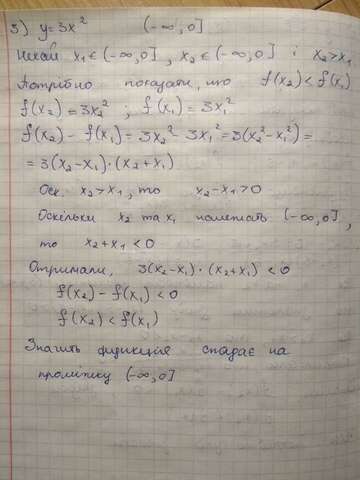 3) y=3x² (-∞,0]
Нехай x₁∈(-∞,0], x₂∈(-∞,0] і x₂>x₁
Потрібно показати, що f(x₂)<f(x₁)
f(x₂)=3x₂² ; f(x₁)=3x₁²
f(x₂)-f(x₁)=3x₂² 3x₁²=3(x₂²-x₁²)=
=3(x₂-x₁)·(x₂+x₁)
Оск. x₂>x₁, то x₂-x₁>0
Оскільки x₂ та x₁ належать (-∞,0],
то x₂+x₁<0
Отримали, 3(x₂-x₁)·(x₂+x₁)<0
f(x₂)-f(x₁)<0
f(x₂)<f(x₁)
Значить функція спадає на
проміжку (-∞,0]